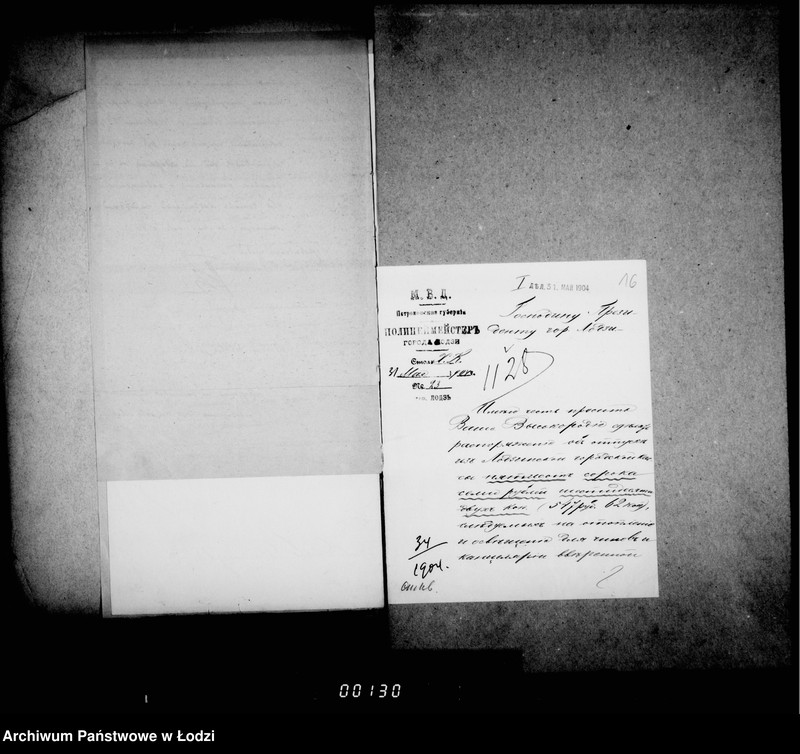 16
I ДѢЛ. 31. МАЙ 1904
М. В. Д.
Петроковская губернія
ПОЛИЦЕЙМЕЙСТЕРЪ
ГОРОДА ЛОДЗИ
31 Мая
№ 23
гор. ЛОДЗЬ
Господину Прези-
денту гор. Лодзи
1128
Имѣю честь просить
Ваше Высокородіе сдѣлать
распоряженіе объ отпускѣ
изъ Лодзинской городской кас-
сы пятьсотъ сорока
семи рублей шестидесяти
двухъ коп. (547 руб. 62 коп.),
слѣдуемыхъ на отопленіе
и освѣщеніе для чиновъ и
канцеляріи ввѣренной
34
1904.
00130
Archiwum Państwowe w Łodzi